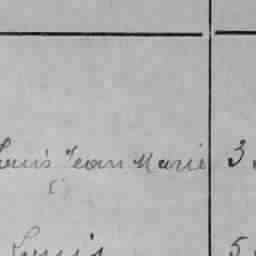 Louis Jean Marie 3
Louis 5